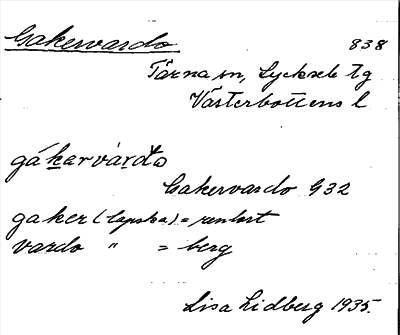 Gakervardo 838
Tärna sn, Lycksele tg
Västerbottens l
gákarvárđo
Gakervardo G32
gaker (lapska) = renhort
vardo " = berg
Lisa Lidberg 1935.